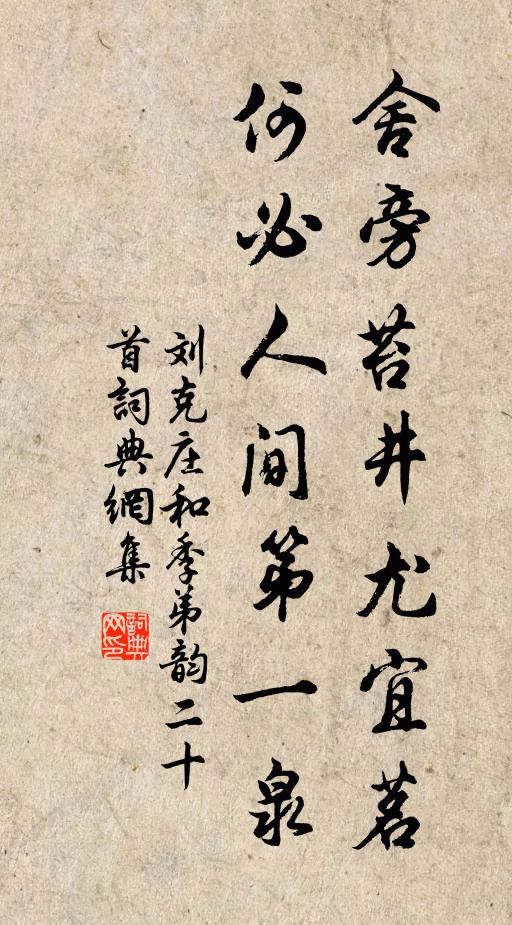 舍旁苔井尤宜茗
何必人间第一泉
刘克庄和季弟韵二十
首詞典網集
詞典
网印